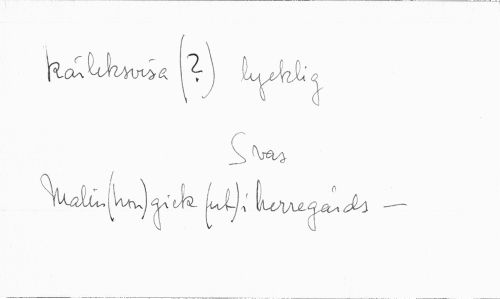 Kärleksvisa (?) lycklig
Svas
Malin (hon) gick (ut) i herregårds —